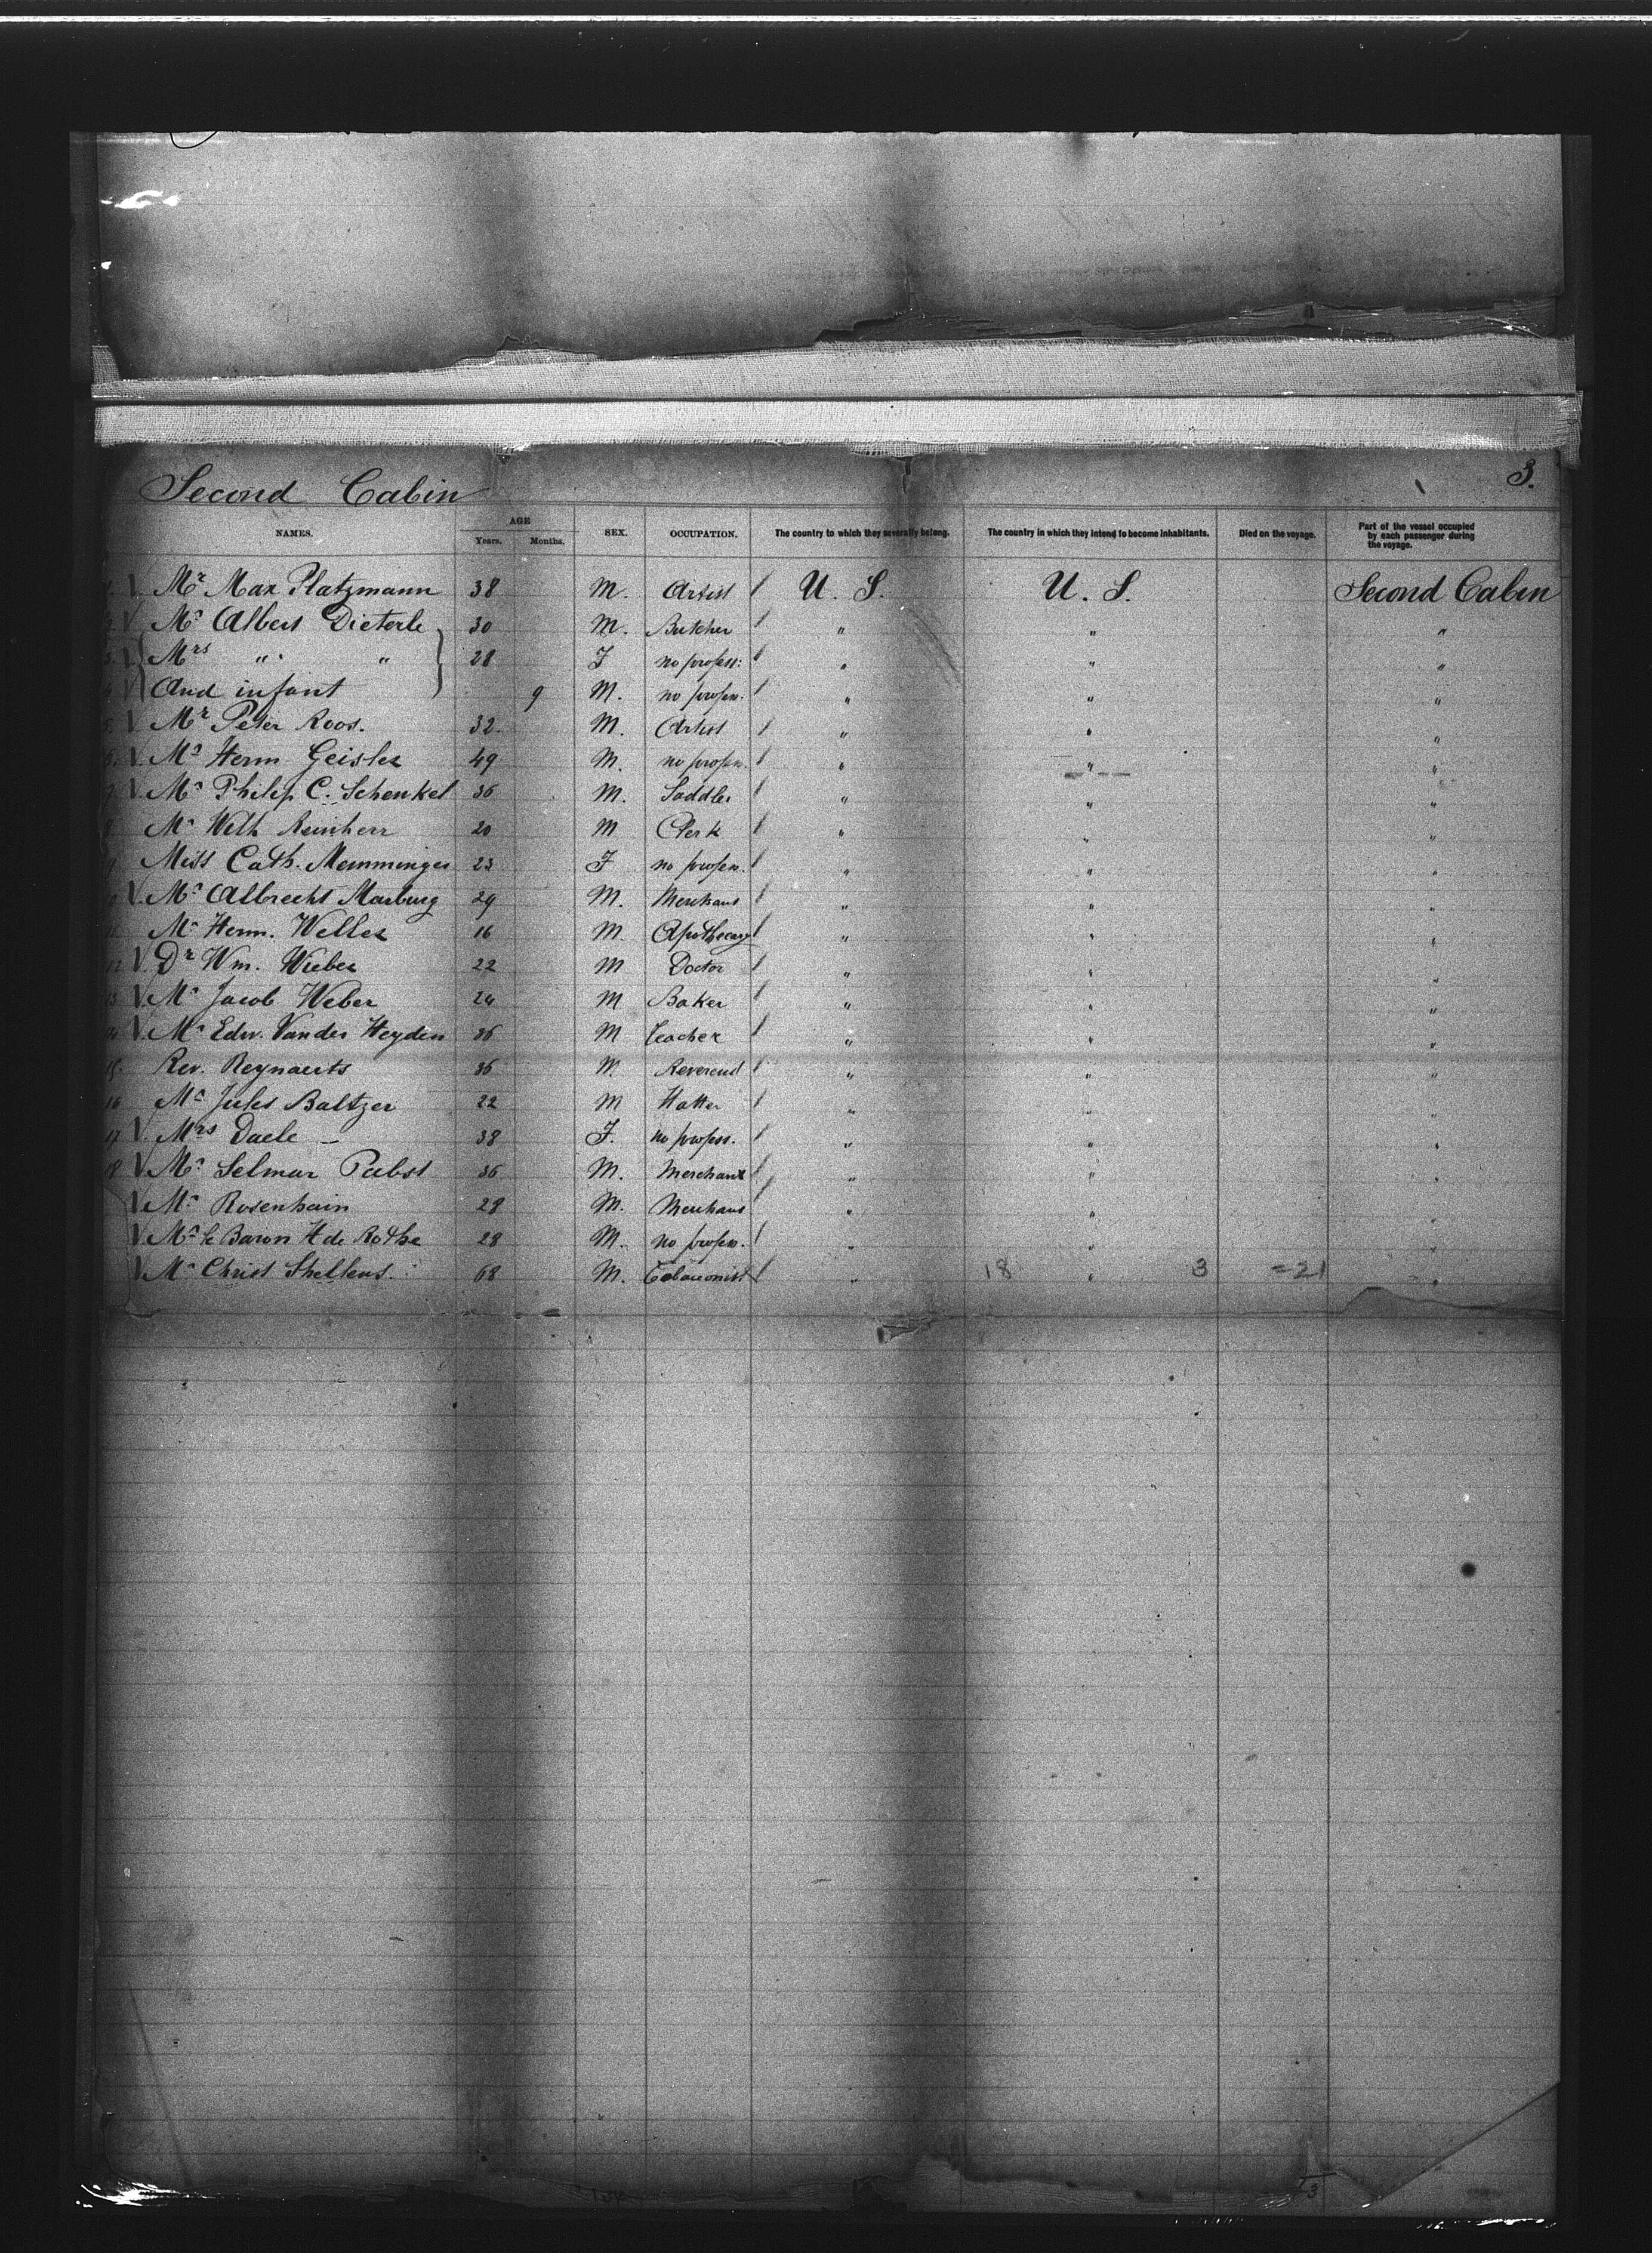 3.
Second Cabin
NAMES. AGE Years. Months. SEX. OCCUPATION. The country to which they severally belong. The country in which they intend to become inhabitants. Died on the voyage. Part of the vessel occupied by each passenger during the voyage.
1. V. Mr Max Platzmann 38 M. Artist / U. S. U. S. Second Cabin
2 V Mr Albert Dieterle 30 M. Butcher / " " "
3. V. Mrs " " 28 F no profess: / " " "
4 V And infant 9 M. no profess. / " " "
5. V. Mr Peter Roos. 32. M. Artist / " " "
6. V. Mr Herm Geisler 49 M. no profess. / " " "
7 V. Mr Philip C. Schenkel 36 M. Saddler / " " "
8 Mr Wilh Reinherr 20 M Clerk / " " "
9 Miss Cath. Memminger 23 F no profess. / " " "
10 V. Mr Albrecht Marburg 29 M. Merchant / " " "
11. Mr Herm. Weller 16 M. Apothecary / " " "
12 V. Dr Wm. Wieber 22 M Doctor / " " "
13 V. Mr Jacob Weber 24 M Baker / " " "
14 V. Mr Edw. Vander Heyden 36 M Teacher / " " "
15. Rev. Reynaerts 36 M. Reverend / " " "
16 Mr Jules Baltzer 22 M Hatter / " " "
17 V. Mrs Daele — 38 F. no profess. / " " "
18 V Mr Selmar Pabst 36 M. Merchant / " " "
V Mr Rosenhain 28 M. Merchant / " " "
V. Mr le Baron H de Rothe 28 M. no profess. / " " "
V Mr Christ Shellens. 68 M. / " 18 " 3 =21 "